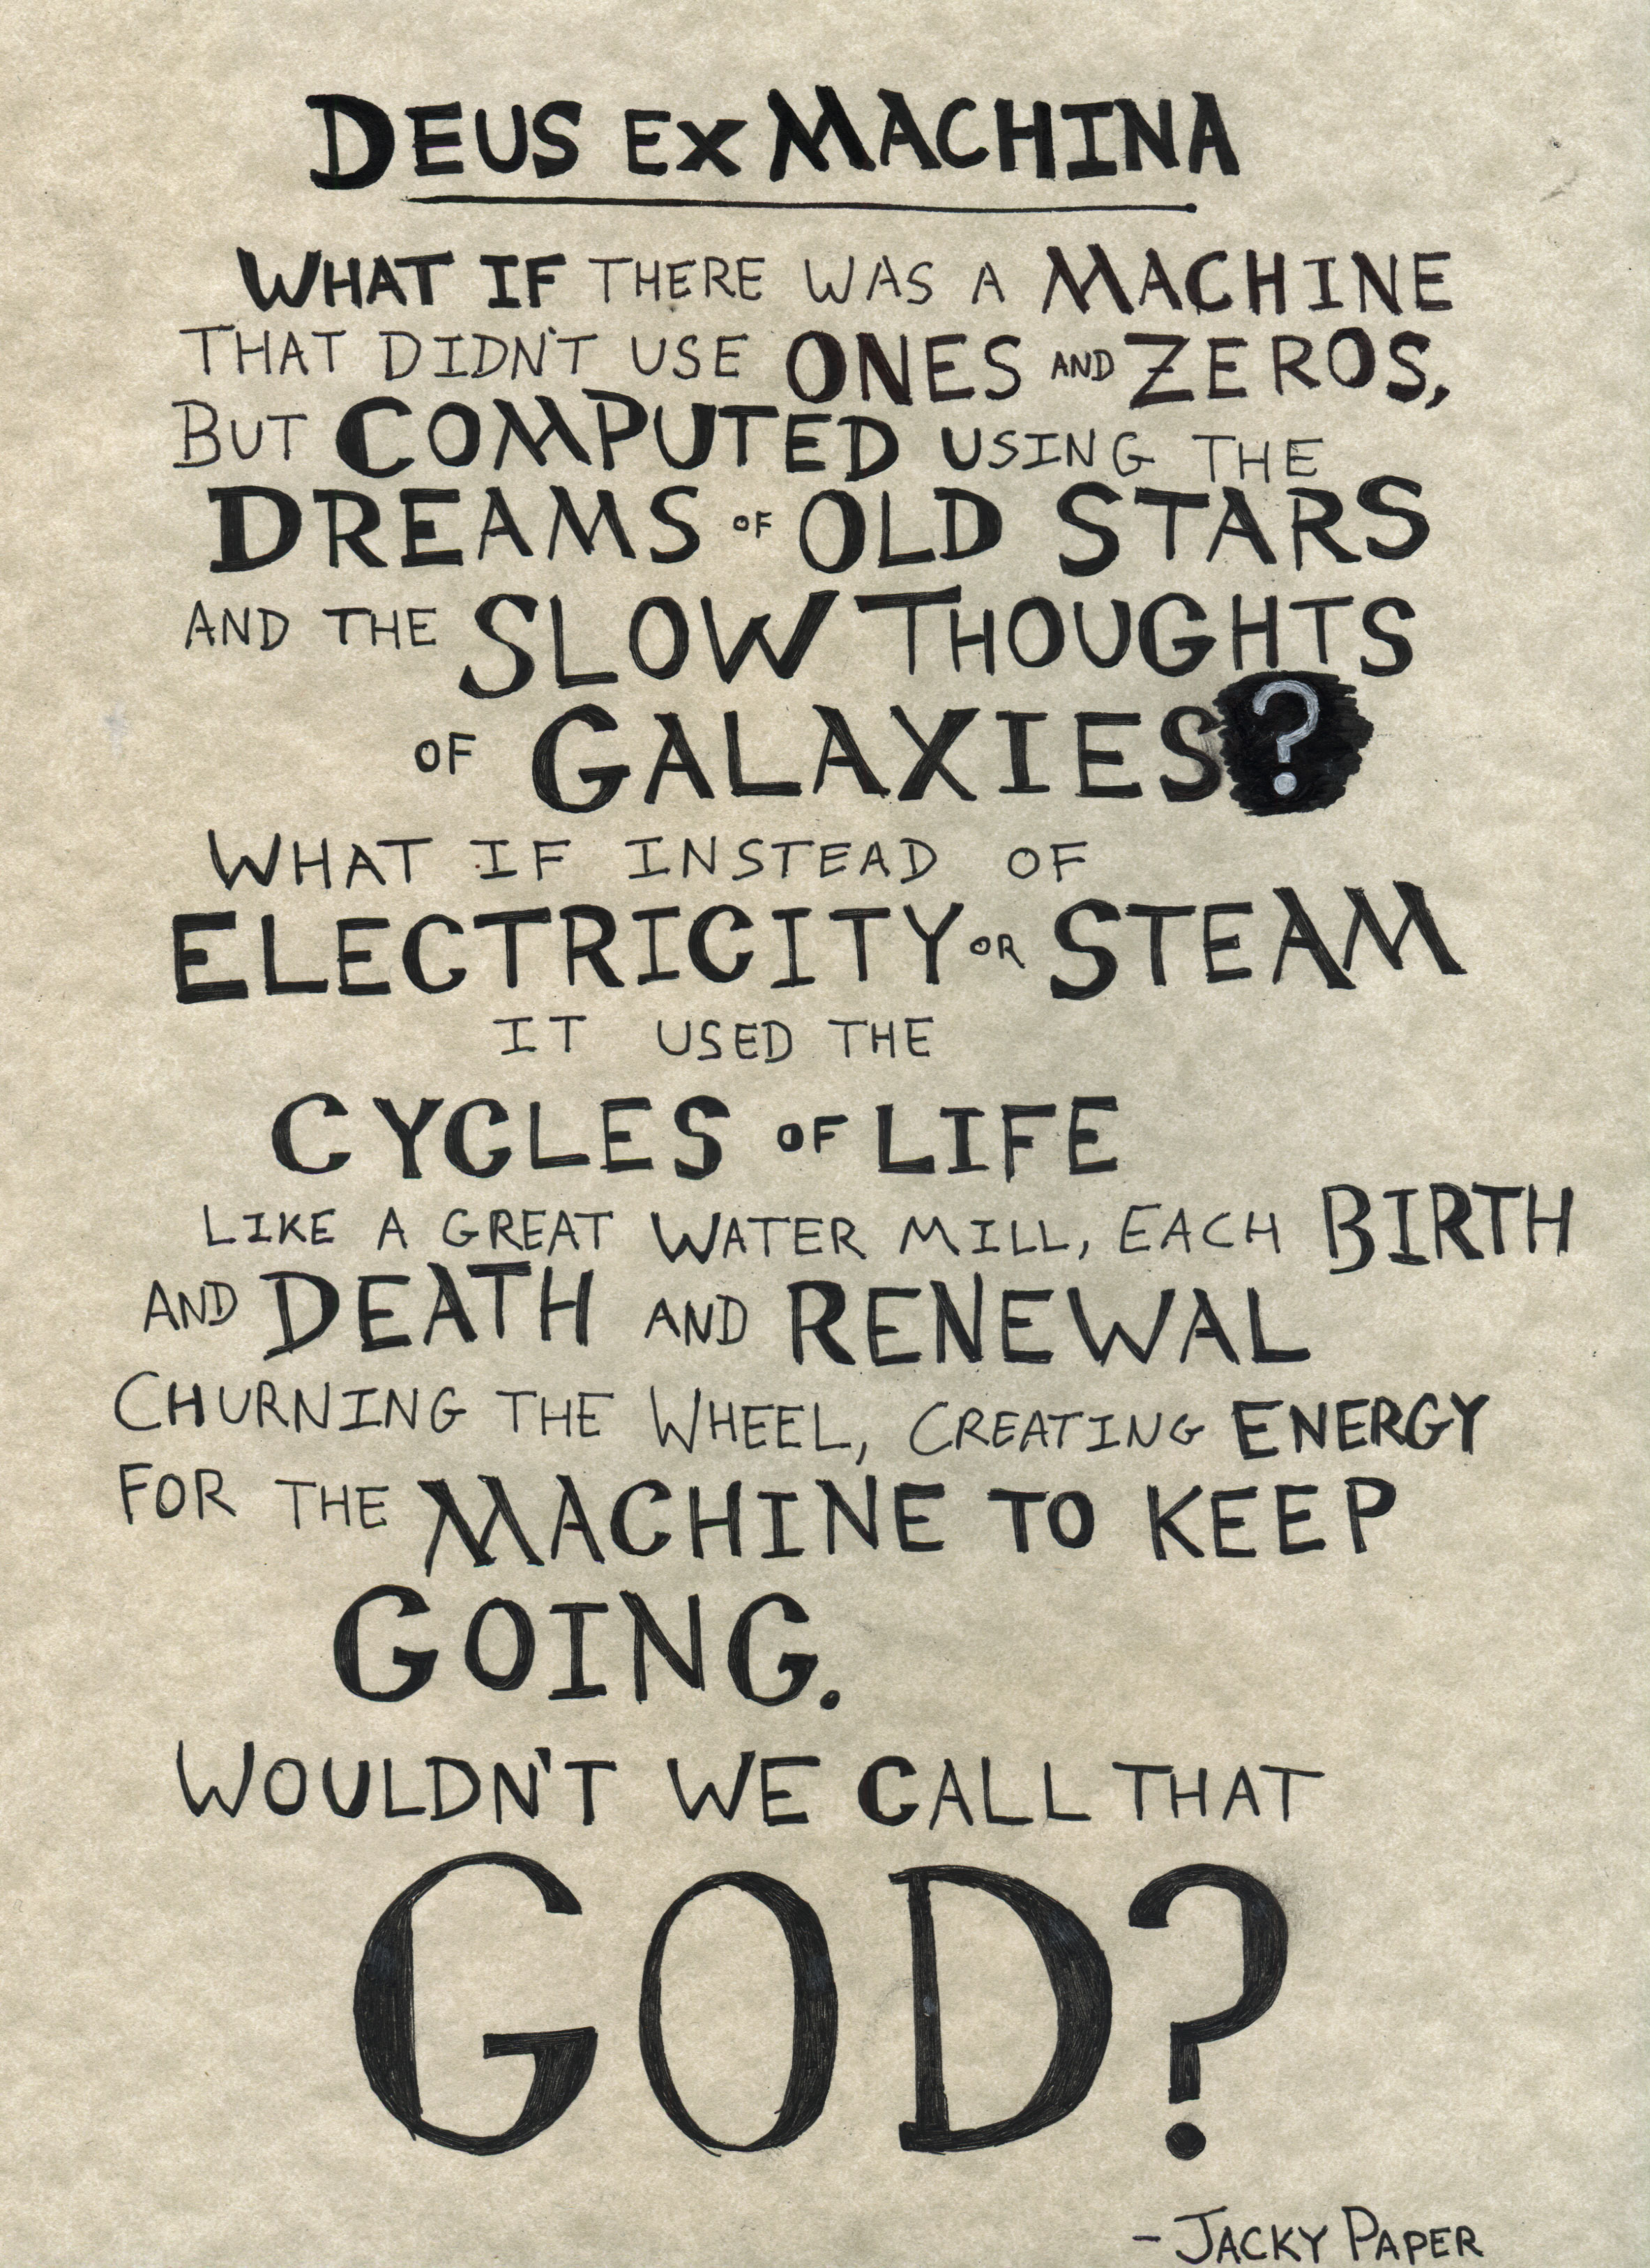 DEUS EX MACHINA
WHAT IF THERE WAS A MACHINE
THAT DIDN'T USE ONES AND ZEROS,
BUT COMPUTED USING THE
DREAMS OF OLD STARS
AND THE SLOW THOUGHTS
OF GALAXIES?
WHAT IF INSTEAD OF
ELECTRICITY OR STEAM
IT USED THE
CYCLES OF LIFE
LIKE A GREAT WATER MILL, EACH BIRTH
AND DEATH AND RENEWAL
CHURNING THE WHEEL, CREATING ENERGY
FOR THE MACHINE TO KEEP
GOING.
WOULDN'T WE CALL THAT
GOD?
- JACKY PAPER